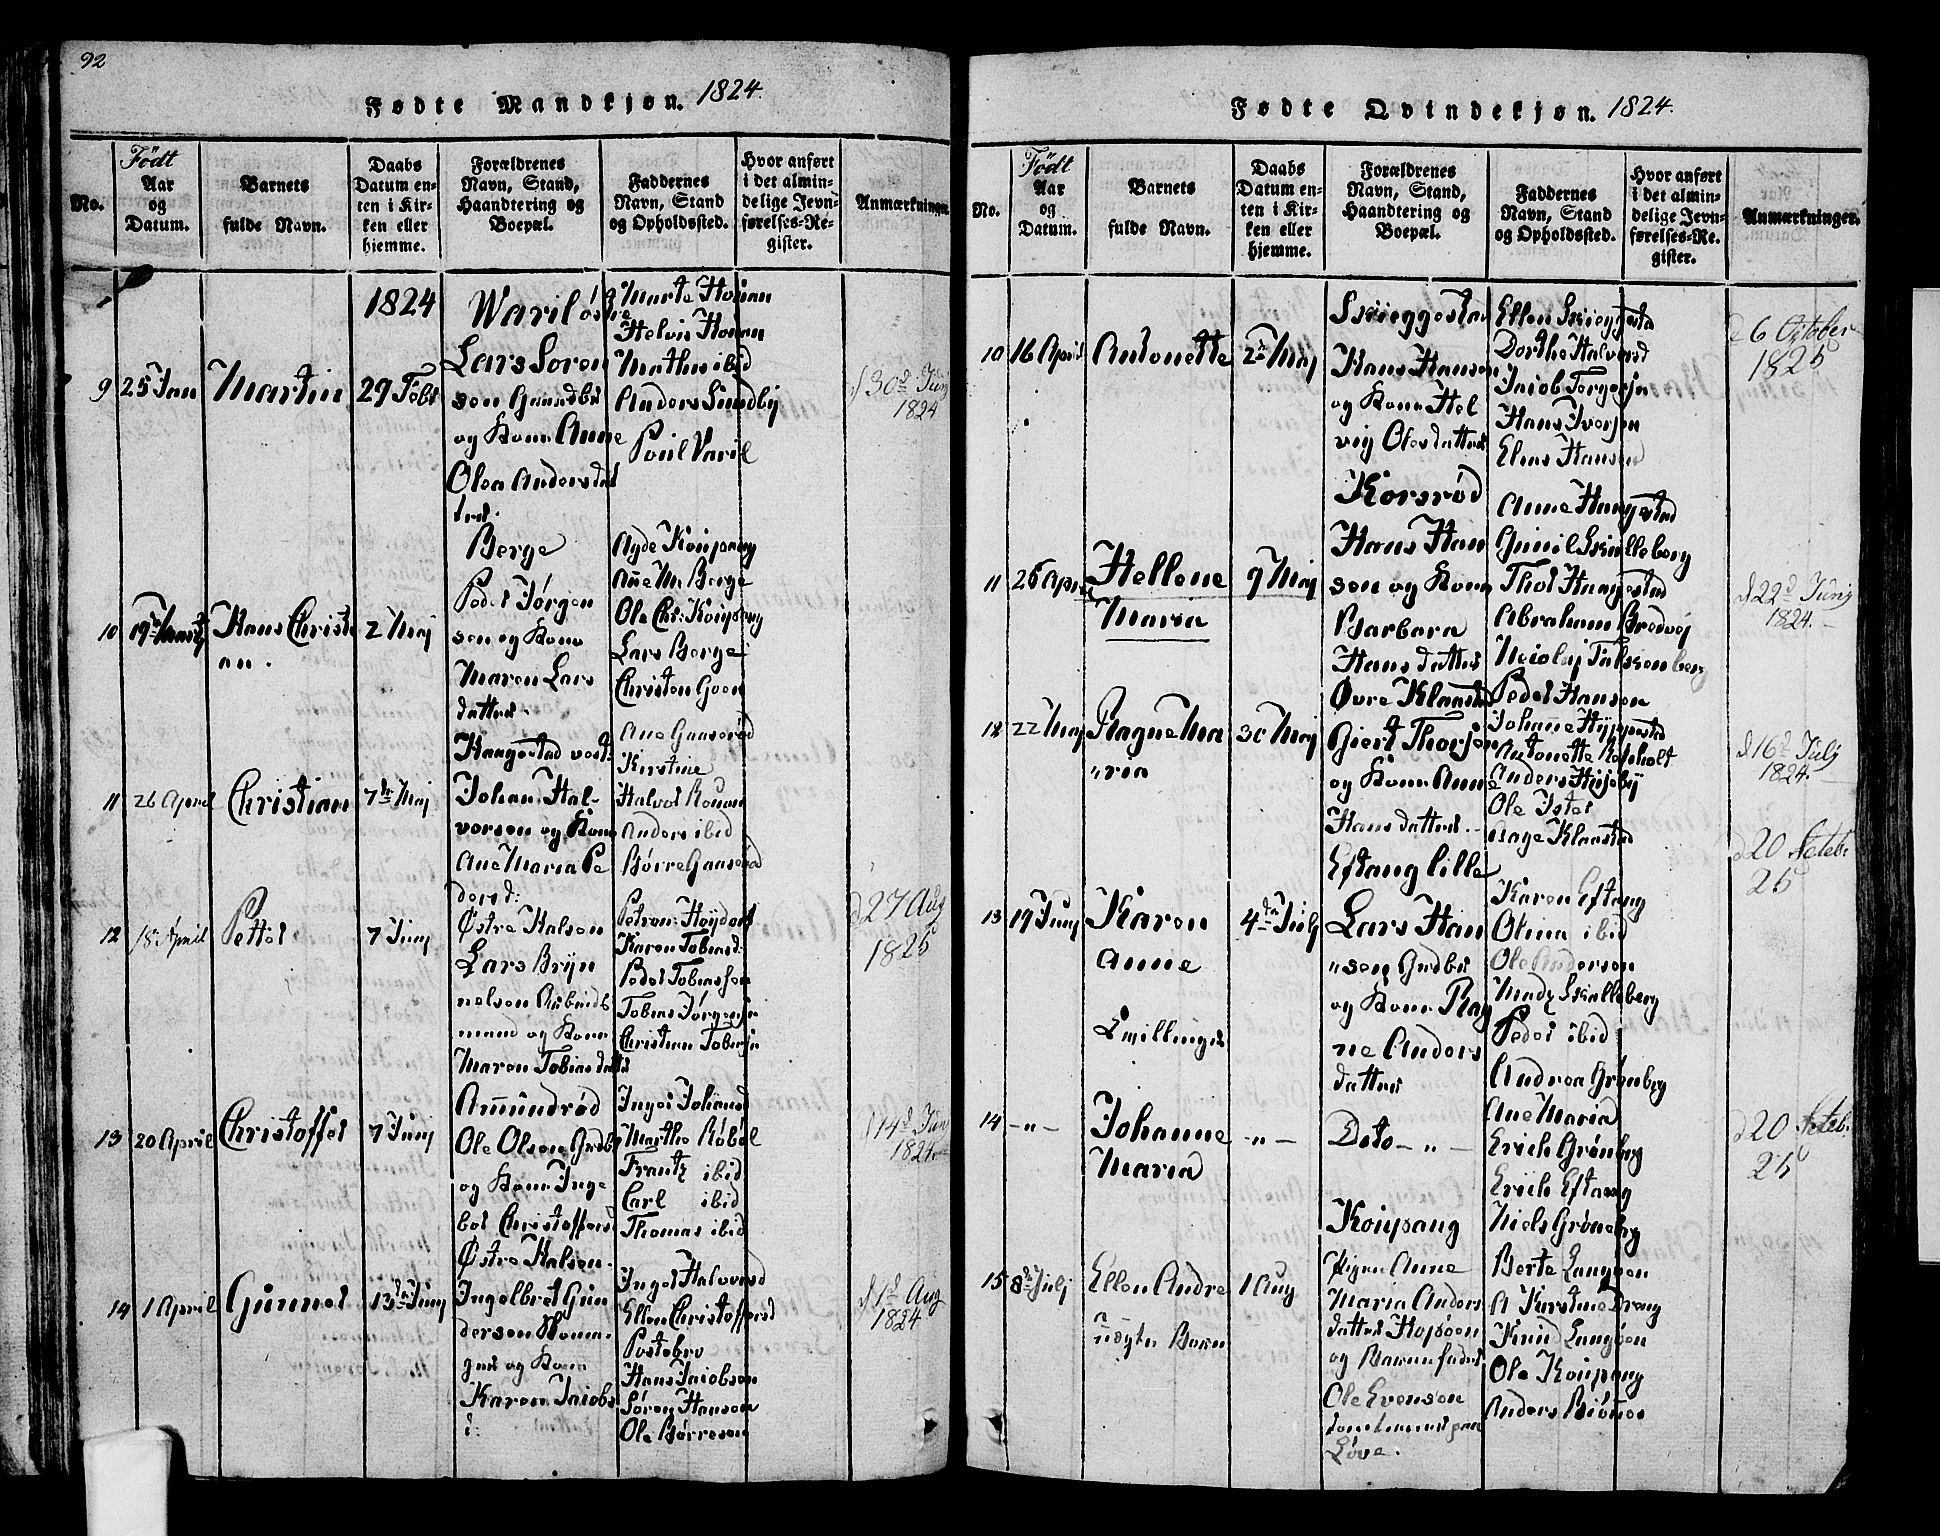 92
Fødte Mandkjøn. 1824.
No.
Födt
Aar
og
Datum.
Barnets
fulde Navn.
Daabs
Datum en-
ten i Kir-
ken eller
hjemme.
Forældrenes
Navn, Stand,
Haandtering og
Boepæl.
Faddernes
Navn, Stand
og Opholdssted.
Hvor anført
i det almin-
delige Jevn-
førelses-Re-
gister.
Anmærkninger
9
25 Jan
Martin
1824
29 Febr
Lars Soren
sen
og Kone Anne
Olea Andersdat
ter.
Marte Honan
Helvin Honan
Mathis ibid
Anders Sundby
Poul Varil
d 30d Juny
1824
10
19de Marty
Hans Christi
an.
2 Maj
Berge
Peder Jørgen
sen og Kone
Maren Lars
datter.
Ane M. Berge
Ole Chr:
Lars Berge
Christen Goen
11
26 April
Christian
7de Maj
Haugestad vest:
Johan Hal-
vorsen og Kone
Ane Maria Pe
dersd:
Ane Gaaserød
Kirstine
Halvor
Anders ibid
Børre Gaaserød
12
18 April
Petter
7 Juny
Østre Halsen
Lars Bryn
nelsen Arbeids
mand og Kone
Maren Tobiasdatter
Karen Tobiasd:
Peder Tobiassen
Tobias Jørgensen
Christian Tobiasen
d 27 Aug
1825
13
20 April
Christoffer
7 Juny
Amundrød
Ole Olsen
og Kone Inge
bor Christoffersd
Inger Johansd
Marthe Røbøl
Frantz ibid
Carl ibid
Thomas ibid
d 14d Jun
1824
14
1 April
Gunner
13de Juny
Østre Halsen
Ingelbret Gun
dersen
og Kone
Karen Jacobs
d:
Inger Halvorsd
Ellen Christoffersd
Postebro
Hans Jacobsen
Søren Hansen
Ole Børresen
d 1d Aug
1824
Fødte Qvindekjøn. 1824.
No.
Födt
Aar
og
Datum.
Barnets
fulde Navn.
Daabs
Datum en-
ten i Kir-
ken eller
hjemme.
Forældrenes
Navn, Stand,
Haandtering og
Boepæl.
Faddernes
Navn, Stand
og Opholdssted.
Hvor anført
i det almin-
delige Jevn-
førelses-Re-
gister.
Anmærkninger.
10
16 April
Antonette
2de Maj
Skieggestad
Hans Hansen
og Kone Hel
vig Olesdatter
Ellen Skieggestad
Dorthe Halvorsd
Jacob Torgersen
Hans Iversen
Elias Hansen
d 6 October
1825
11
26 April
Hellene
Maria
9 Maj
Korsrød
Hans Han
sen og Kone
Barbara
Hans datter
Anne Haugestad
Gunil Skalleberg
Thor Haugestad
Abraham Bredvej
Nicolaj Falkenberg
d 22d Juny
1824.
12
22 Maj
Ragne Ma
ria
30 Maj
Øvre Klaastad
Giert Thorsen
og Kone Anne
Hans datter
Peder Hansen
Johanne Hyppestad
Antonette
Anders Huseby
Ole Ister
Aage Klaastad
d 16d July
1824.
13
19 Juny
Karen
Anne
Tvillinger
4de July
Eftang lille
Lars Han
sen
og Kone Rag
ne Anders
datter
Karen Eftang
Olina ibid
Ole Anderson
Mads Skalleberg
Peder ibid
Andrea Grønberg
d 20 Octobr
25
14
-"-
Johanne
Maria
-"-
Dito -"-
Ane Maria
Erich Grønberg
Erich Eftang
Niels Grønberg
d 20 Octobr
25
15
8de July
Ellen Andre
a
uægte Barn
1 Aug
Pigen Anne
Maria Anders
datter
og Barnefader
Ole Evensen
Berte Langøen
A Kirstine
Knud Langøen
Ole
Anders